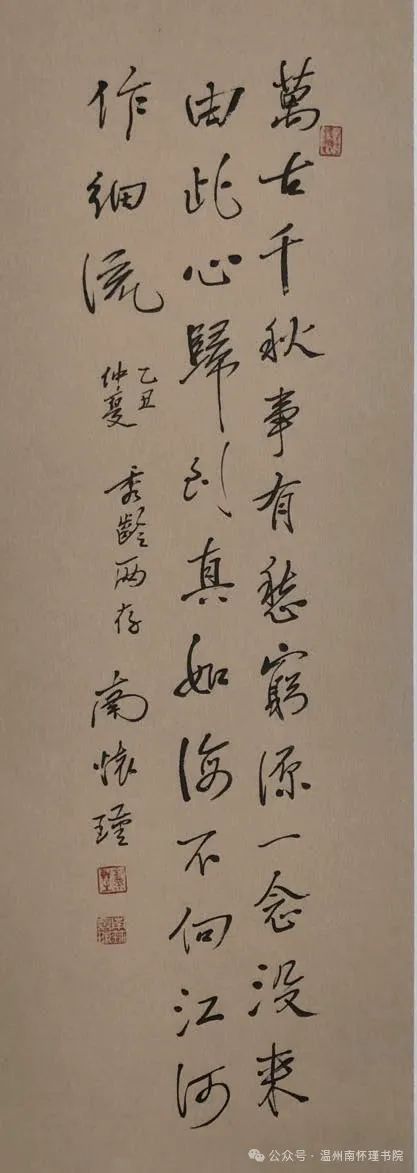 萬古千秋事有愁窮源一念没来
由此心歸到真如海不向江河
作細流
乙丑
仲夏
秀齡両存
南懷瑾
公众号 · 温州南怀瑾书院